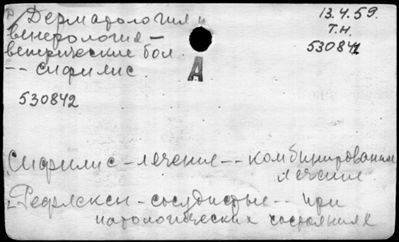 Дерматология и
13.4.59.
венерология –
Т.Н.
венерические бол.
530842
-- сифилис.
А
530842
Сифилис – лечение -- комбинированное
лечение
Рефлексы – сосудистые -- при
патологических состояниях